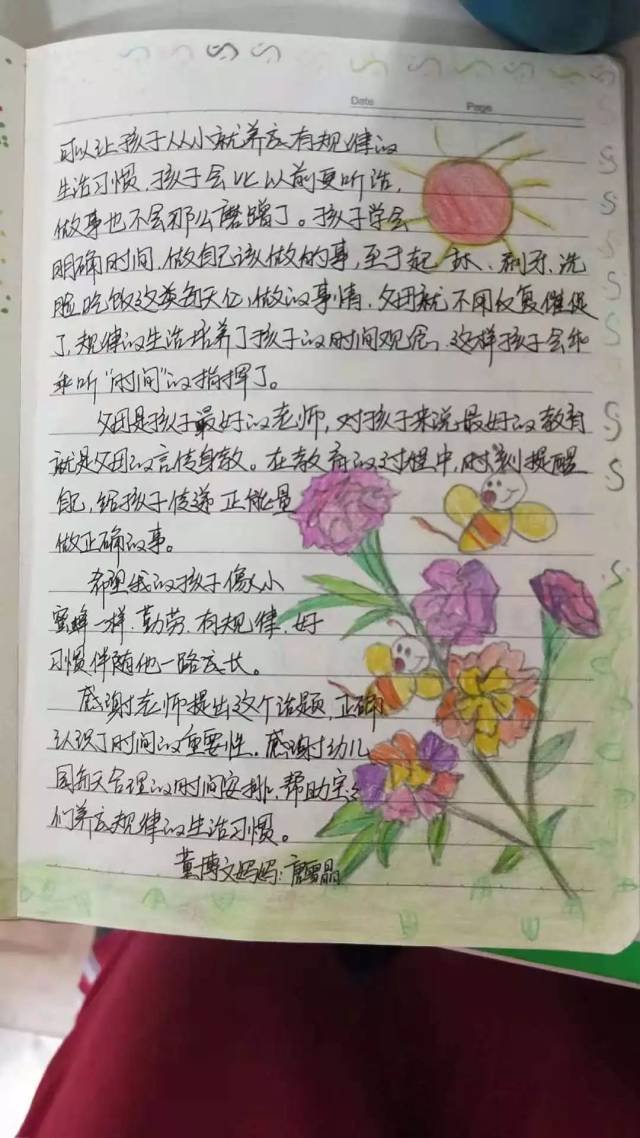 Date Page
可以让孩子从小就养成有规律的
生活习惯,孩子会比以前更听话,
做事也不会那么磨蹭了。孩子学会
明确时间,做自己该做的事,至于起床、刷牙、洗
脸吃饭这类每天必做的事情,父母就不用反复催促
了,规律的生活培养了孩子的时间观念,这样孩子会乖
乖听“时间”的指挥了。
父母是孩子最好的老师,对孩子来说最好的教育
就是父母的言传身教。在教育的过程中,时刻提醒
自己,给孩子传递正能量
做正确的事。
希望我的孩子像小
蜜蜂一样,勤劳,有规律,好
习惯伴随他一路成长。
感谢老师提出这个话题,正确
认识了时间的重要性。感谢幼儿
园每天合理的时间安排,帮助宝宝
们养成规律的生活习惯。
黄博文妈妈:唐雪晶